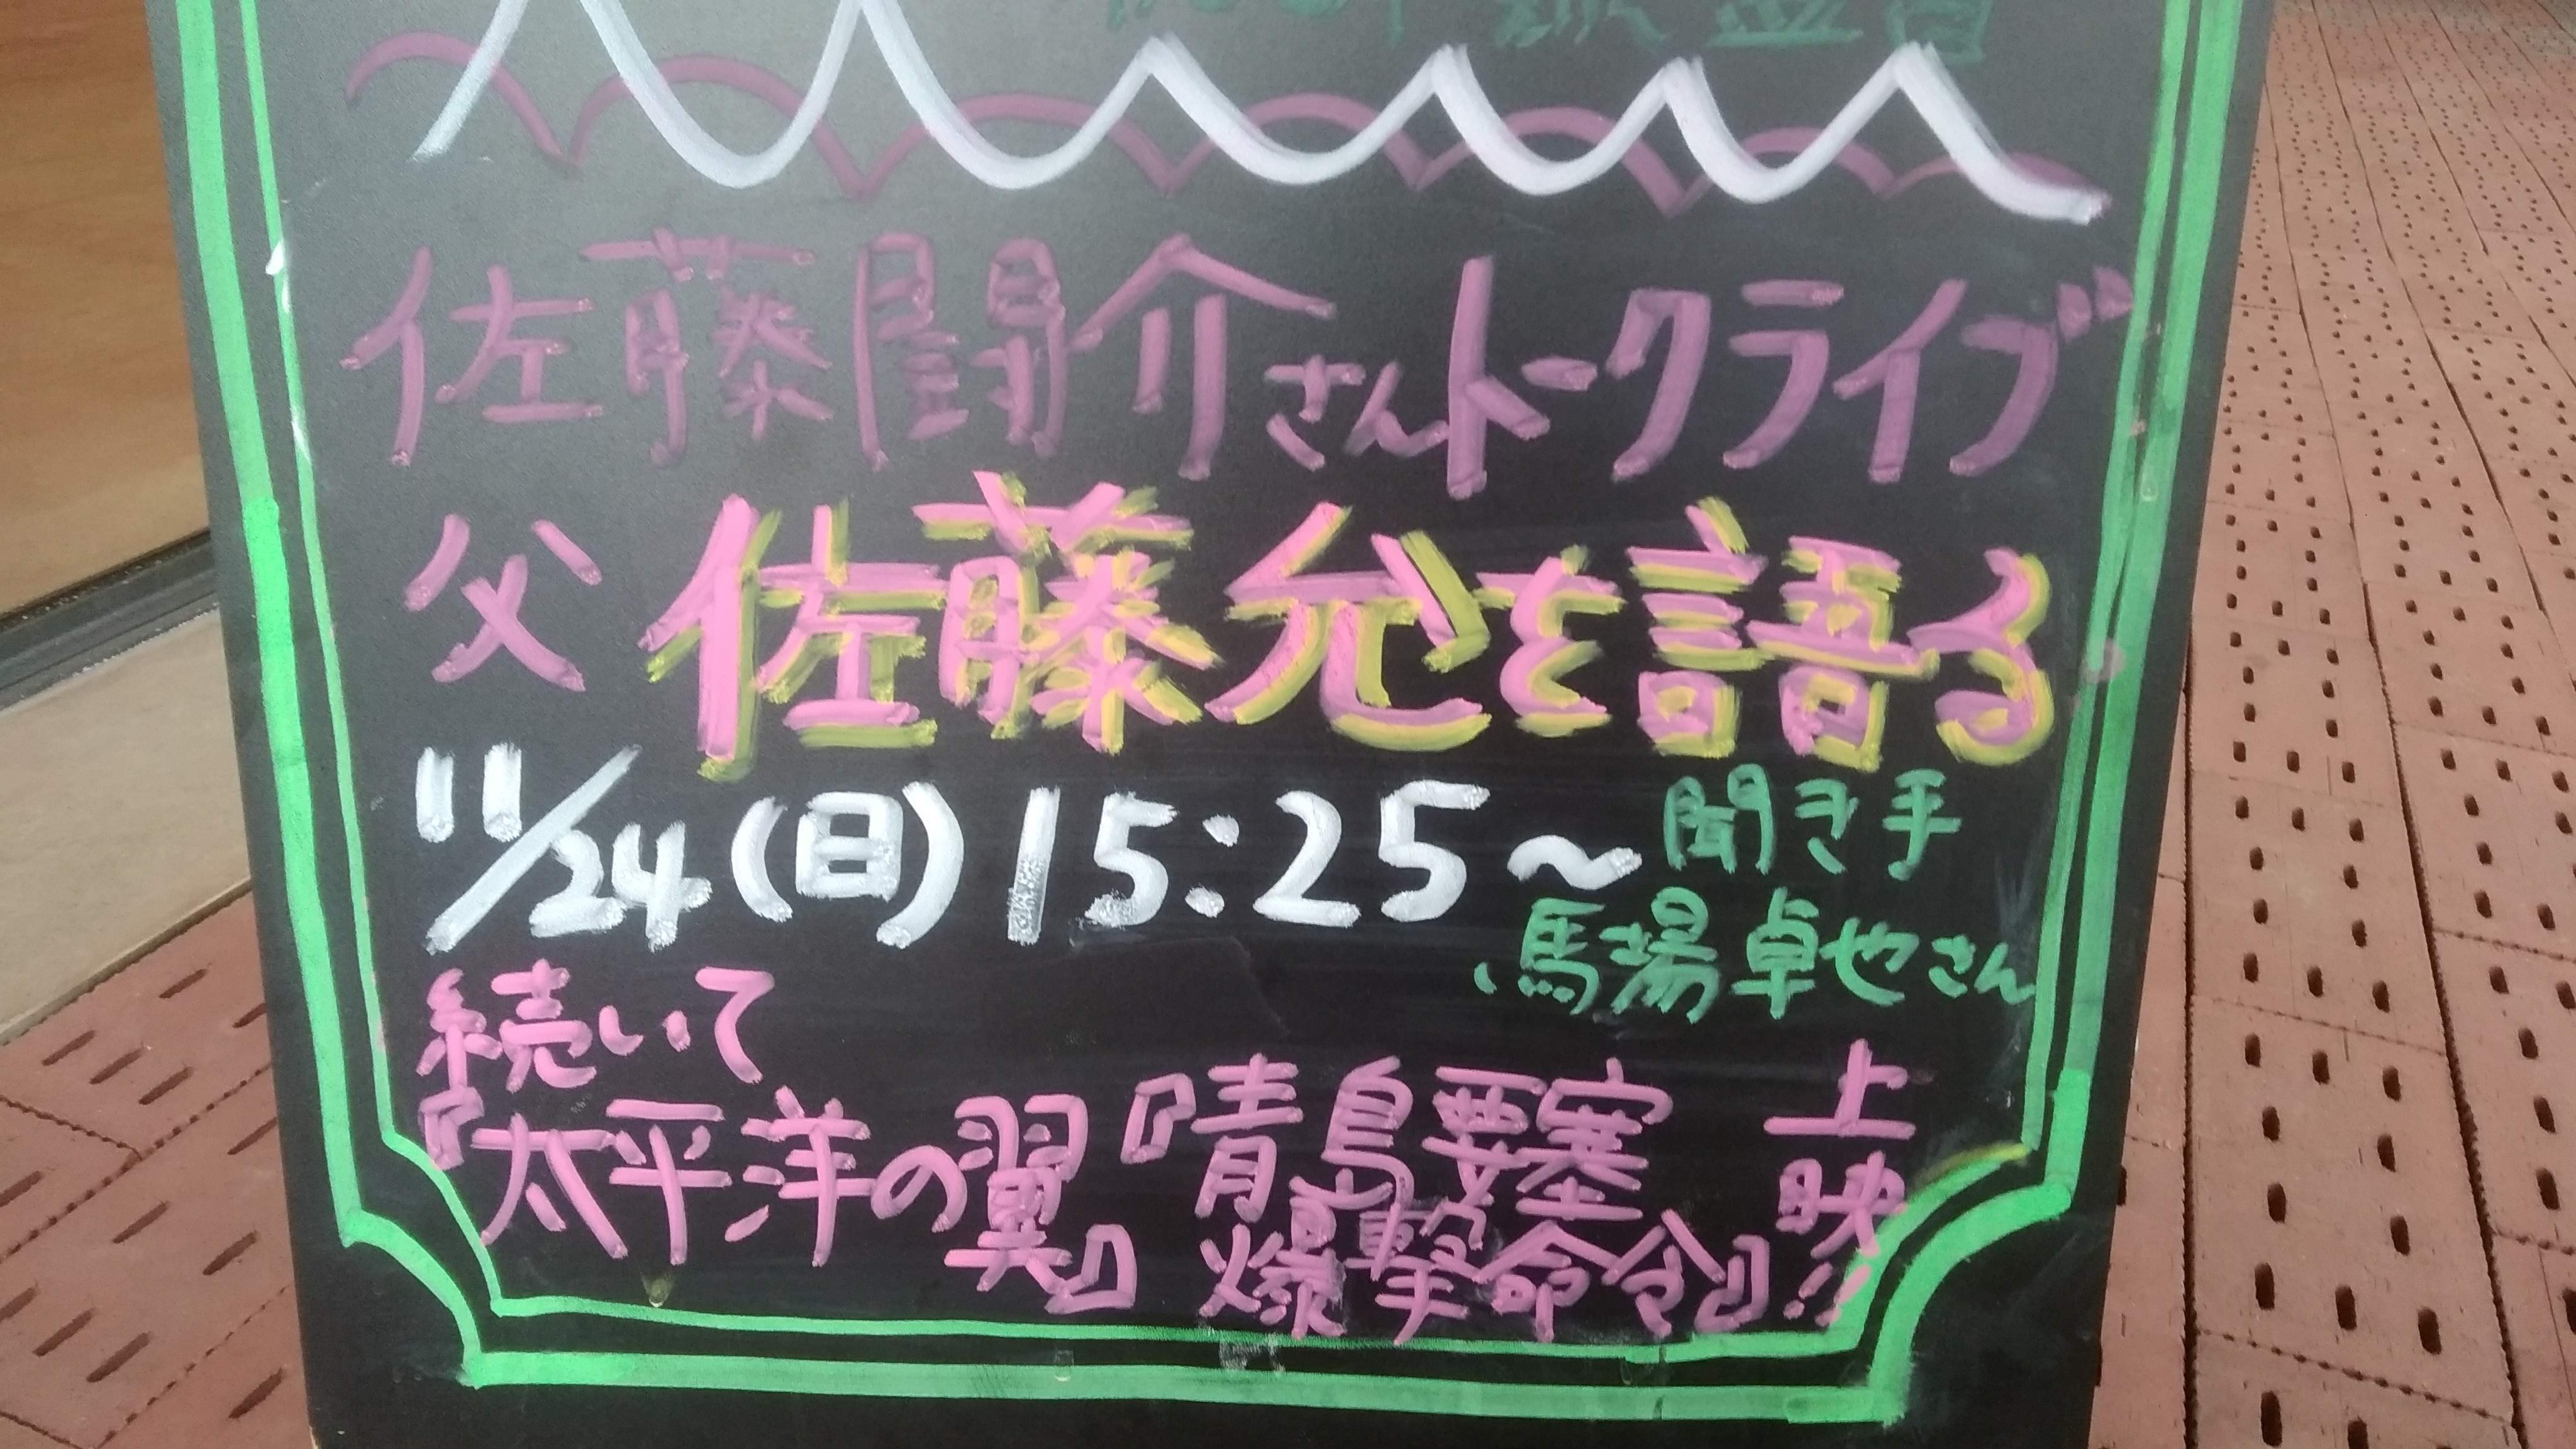 佐藤闘介さんトークライブ
父 佐藤允を語る
11/24(日)15:25〜
聞き手
馬場卓也さん
続いて
『太平洋の翼』『青島要塞爆撃命令』上映!!